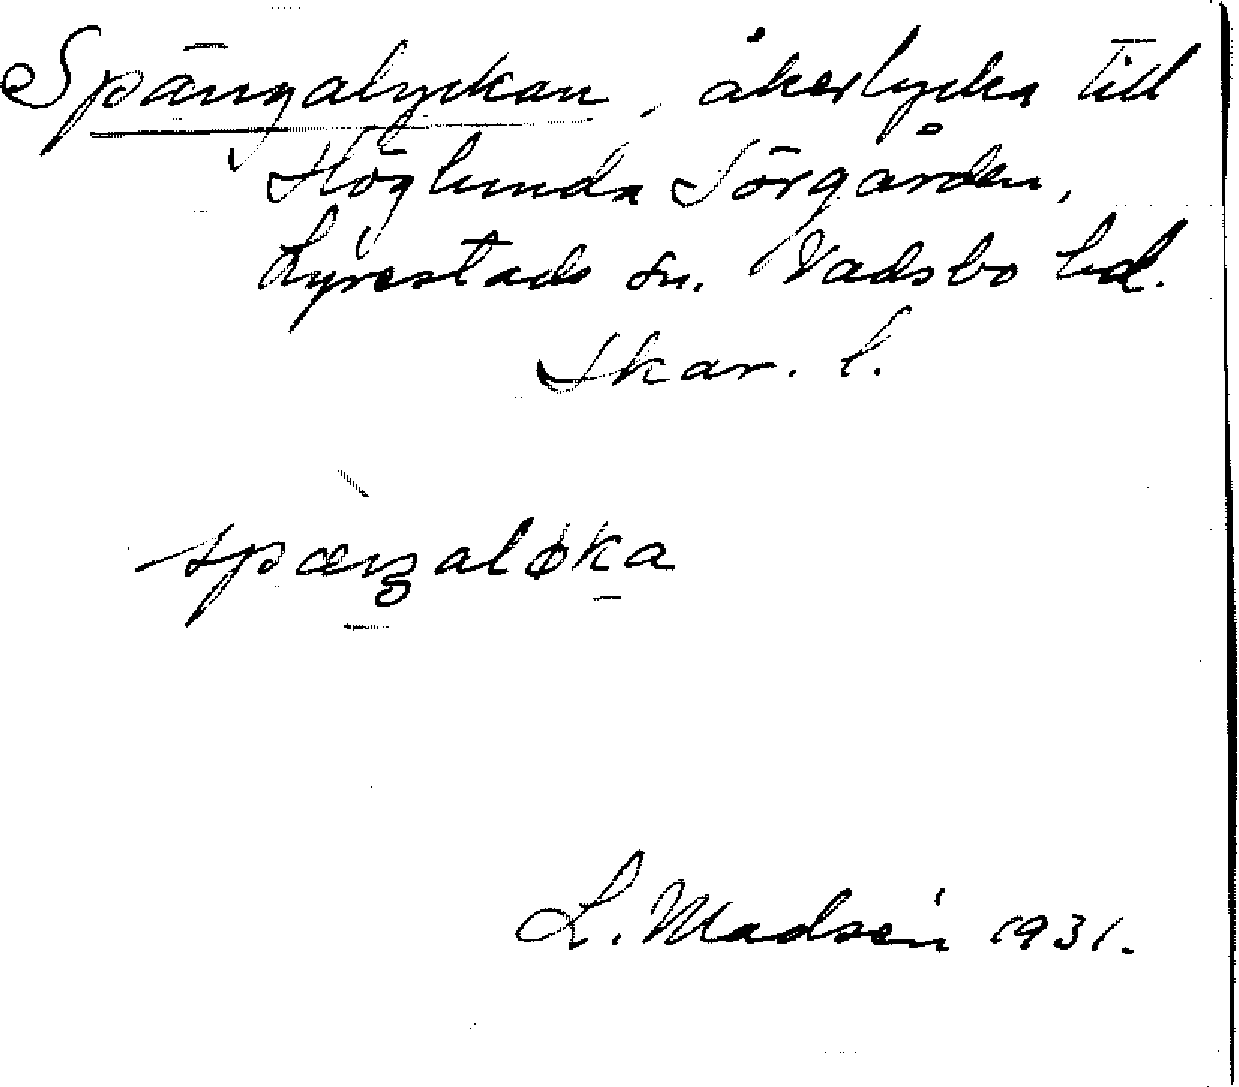 Spängalyckan, åkerlycka till
Höglunda Sörgården,
Lyrestads sn. Vadsbo hd.
Skar. l.
spæŋaløka
L. Madsén 1931.